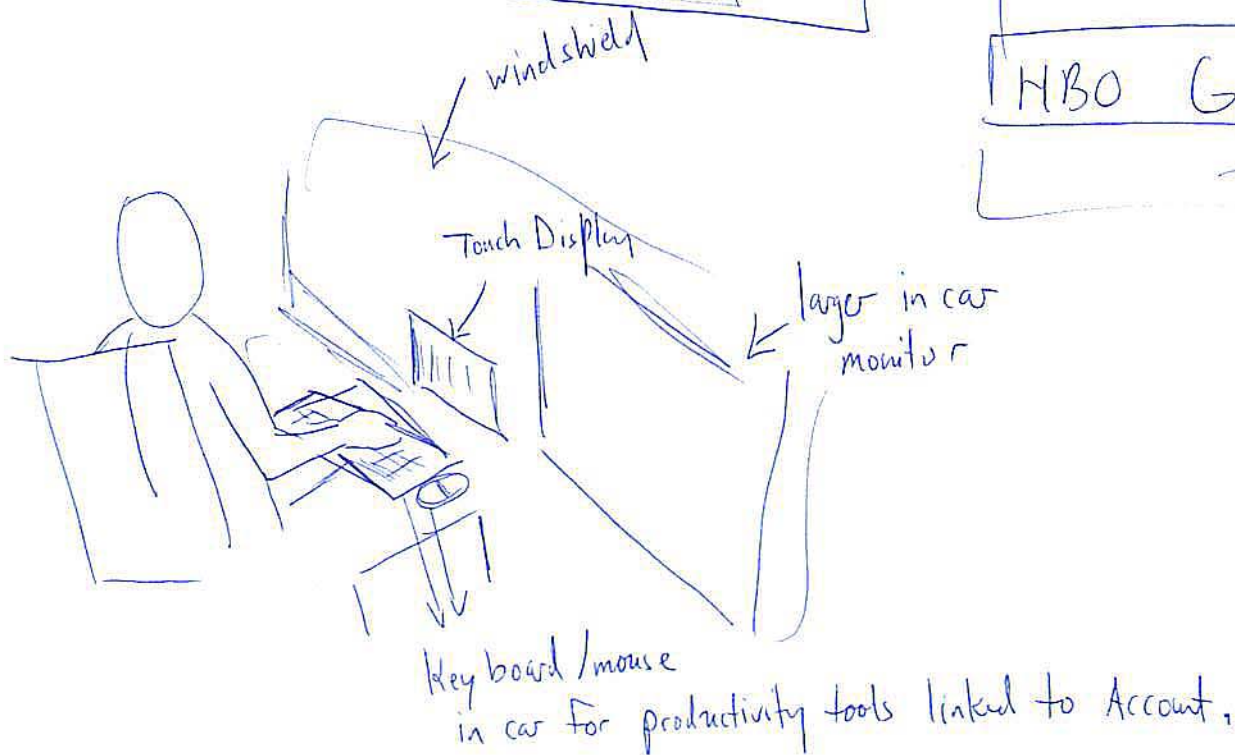 windshield
HBO G
Touch Display
larger in car
monitor
Keyboard/mouse
in car for productivity tools linked to Account.